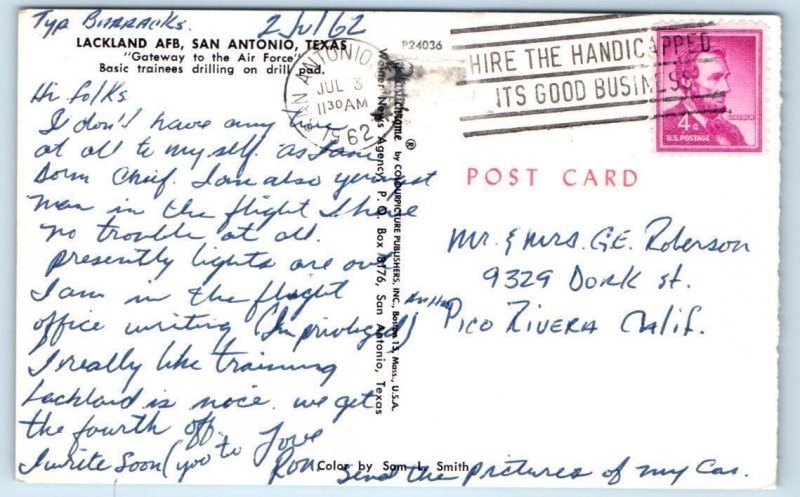 Typ Barracks. 2 Jul 62
LACKLAND AFB, SAN ANTONIO, TEXAS
"Gateway to the Air Force"
Basic trainees drilling on drill pad.
Hi folks
I don't have any time
at all to my self. as I am
Dorm Chief. I am also youngest
man in the flight I have
no trouble at all.
presently lights are out
I am in the flight
office writing (Im privileged)
I really like training
Lackland is nice. we get
the fourth off.
I write soon (you to Love
Ron.
Send the pictures of my Car.
Color by Sam L. Smith
P24036
by COLOURPICTURE PUBLISHERS, INC., Boston 15, Mass., U.S.A.
News Agency, P. O. Box 18176, San Antonio, Texas
SAN ANTONIO
JUL 3
11 30 AM
1962
HIRE THE HANDICAPPED
ITS GOOD BUSINESS
4¢
U.S. POSTAGE
LINCOLN
POST CARD
Mr. & Mrs. G.E. Roberson
9329 Dork st.
Pico Rivera Calif.